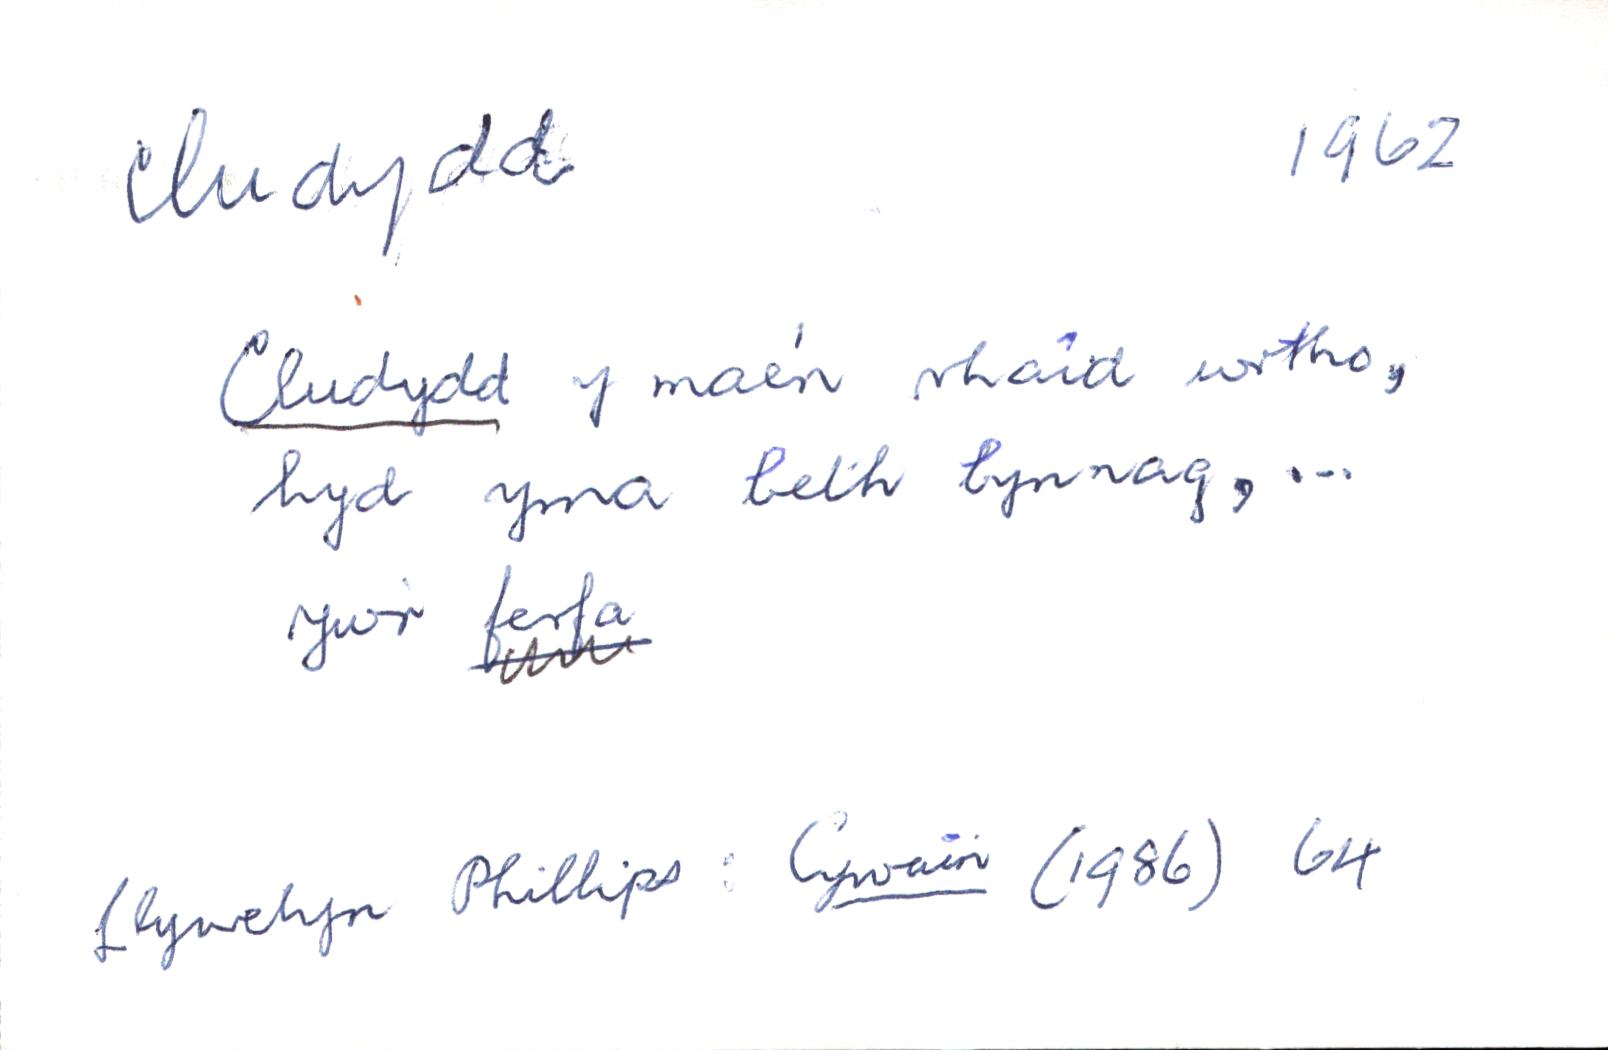 cludydd 1962
Cludydd y mae'n rhaid wrtho,
hyd yma beth bynnag, ...
yw'r ferfa
Llywelyn Phillips : Cywain (1986) 64